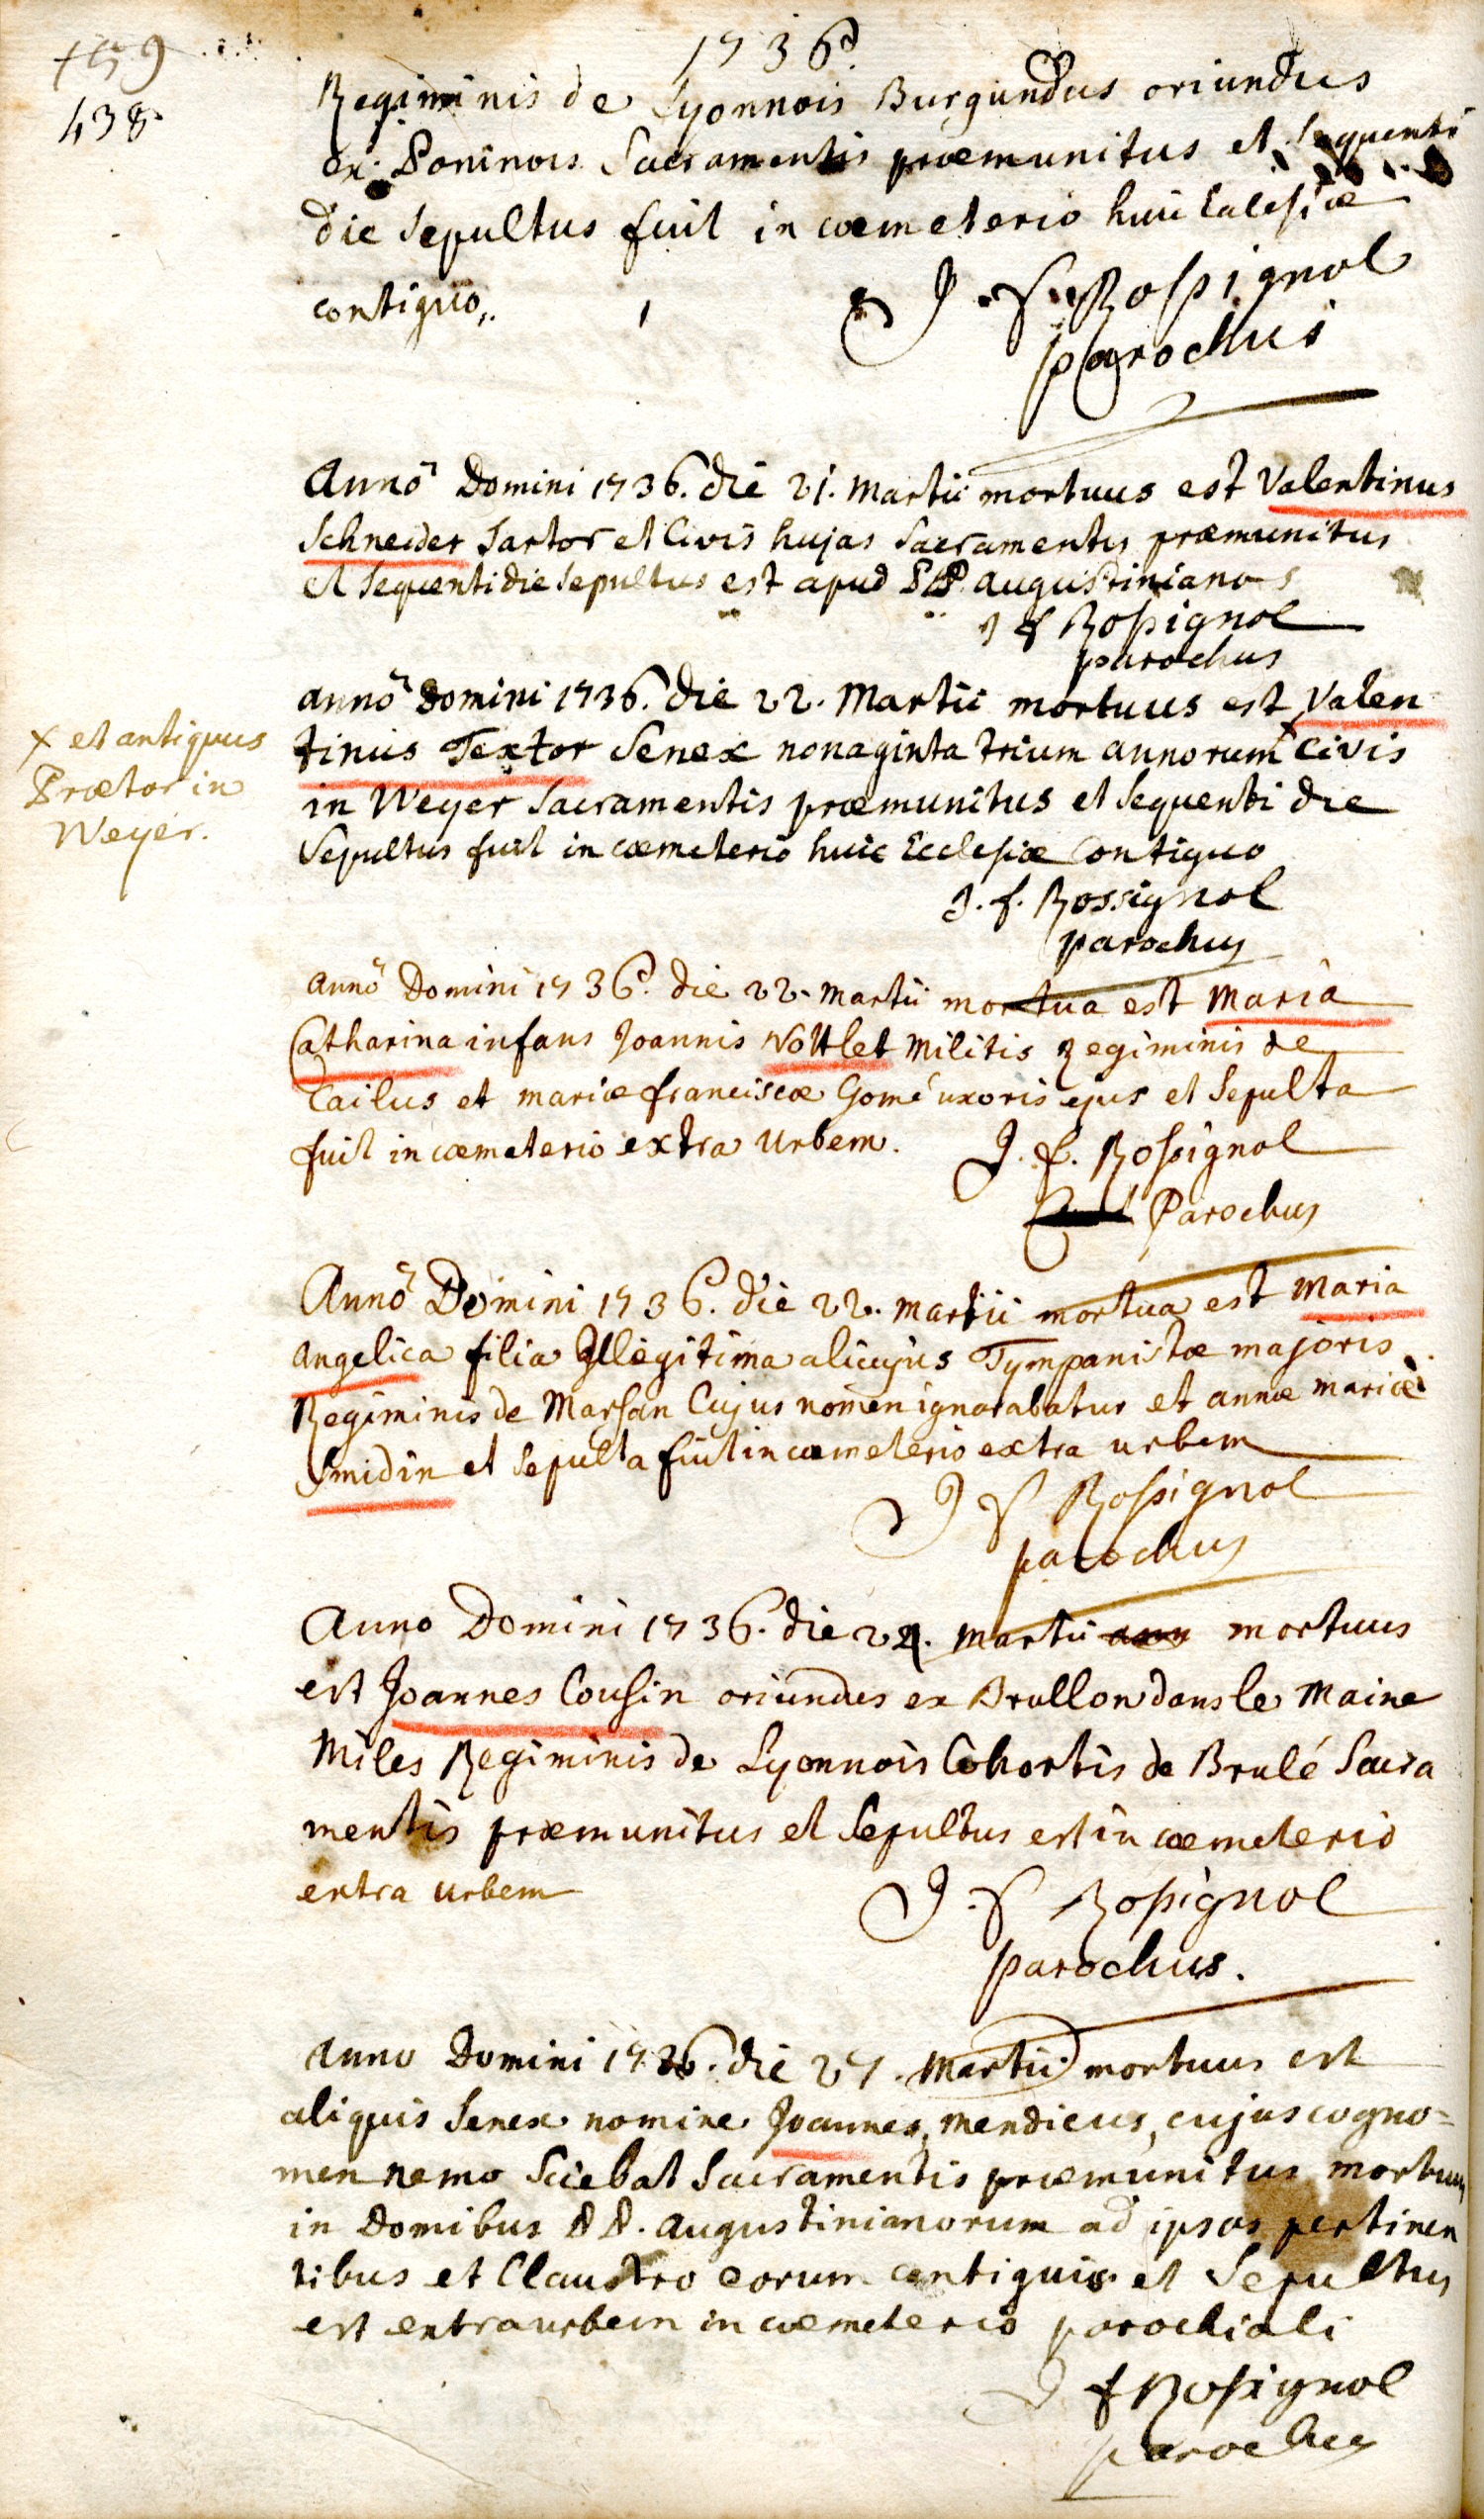 1736.
159
438.
Regiminis de Lyonnois Burgundus oriundus
ex Poninois Sacramentis præmunitus et sequenti
die sepultus fuit in cœmeterio huic Ecclesiæ
contiguo.
J. f. Rossignol
parochus
Annô Domini 1736. die 21. Martii mortuus est Valentinus
Schneider Sartor et Civis hujas Sacramentis præmunitus
et sequenti die sepultus est apud PP. Augustinianos
J f Rossignol
parochus
annô Domini 1736. die 22. Martii mortuus est Valen
tinus Textor Senex nonaginta trium annorum x Civis
x et antiquus
Prætor in
Weyer.
in Weyer Sacramentis præmunitus et sequenti die
Sepultus fuit in cœmeterio huic Ecclesiæ Contiguo
J. f. Rossignol
parochus
annô Domini 1736. die 22. Martii mortua est Maria
Catharina infans Joannis Nottlet Militis Regiminis de
Cailus et mariæ franciscæ Gomé uxoris ejus et Sepulta
fuit in cœmeterio extra Urbem.
J. f. Rossignol
Parochus
Annô Domini 1736. die 22. martii mortua est Maria
Angelica filia Illegitima alicujus Tympanistæ majoris
Regiminis de Marsan Cujus nomen ignorabatur et annæ mariæ
Smidin et Sepulta fuit in cœmeterio extra urbem
J f Rossignol
parochus
Anno Domini 1736. die 24. martii mortuus
est Joannes Cousin oriundus ex Brullon dans le Maine
Miles Regiminis de Lyonnois Cohortis de Brulé Sacra
mentis præmunitus et Sepultus est in cœmeterio
extra urbem
J. f Rossignol
parochus.
Anno Domini 1736. die 27. Martii mortuus est
aliquis Senex nomine Joannes, mendicus, cujus cogno=
men nemo Sciebat Sacramentis præmunitus mortuus
in Domibus PP. Augustinianorum ad ipsos pertinen
tibus et Claustro eorum contiguis et Sepultus
est extra urbem in cœmeterio parochiali
J f Rossignol
parochus